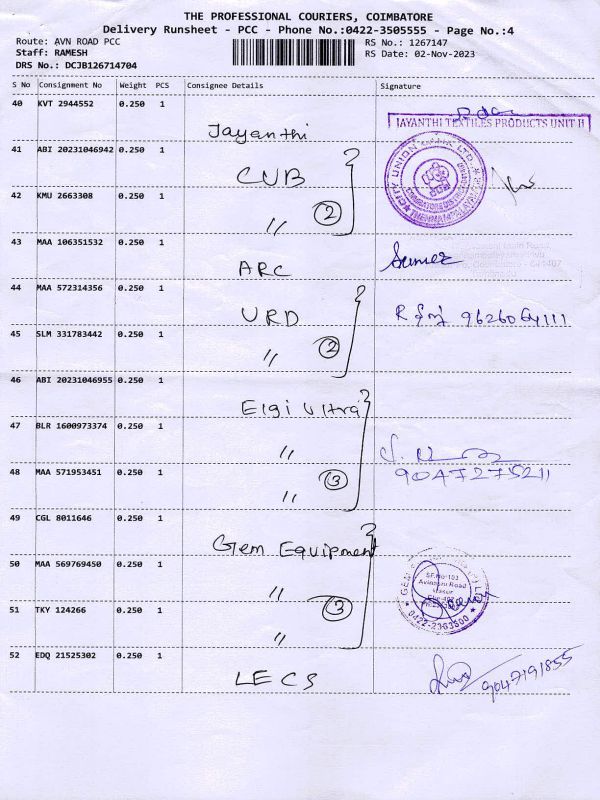 THE PROFESSIONAL COURIERS, COIMBATORE
Delivery Runsheet - PCC - Phone No.:0422-3505555 - Page No.:4
Route: AVN ROAD PCC
RS No.: 1267147
Staff: RAMESH
RS Date: 02-Nov-2023
DRS No.: DCJB126714704
S No Consignment No Weight PCS Consignee Details Signature
40 KVT 2944552 0.250 1
Jayanthi
JAYANTHI TEXTILES PRODUCTS UNIT II
41 ABI 20231046942 0.250 1
CUB
CITY UNION BANK LTD.
42 KMU 2663308 0.250 1
〃 2
43 MAA 106351532 0.250 1
ARC
44 MAA 572314356 0.250 1
URD
45 SLM 331783442 0.250 1
〃 2
46 ABI 20231046955 0.250 1
Elgi Ultra
47 BLR 1600973374 0.250 1
〃
48 MAA 571953451 0.250 1
〃 3
9047275211
49 CGL 8011646 0.250 1
Gem Equipment
50 MAA 569769450 0.250 1
〃
SF.No-103
Avinashi Road
0422-2363800
51 TKY 124266 0.250 1
〃 3
52 EDQ 21525302 0.250 1
LECS
9047191855